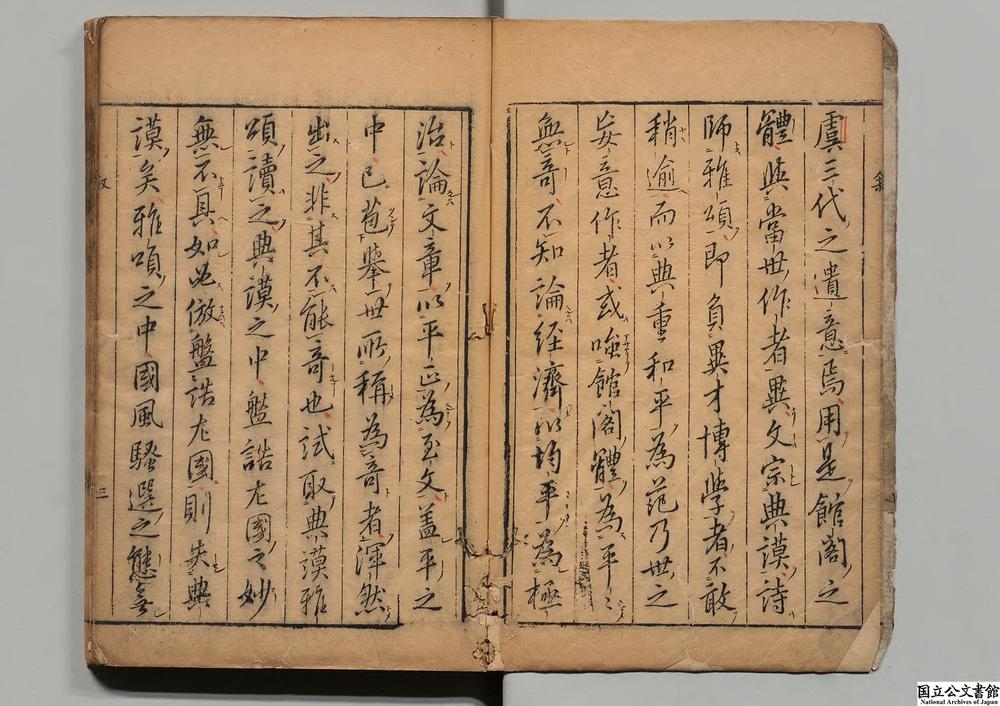 虞三代之遺意焉用是館閣之
體與當世作者異文宗典謨詩
師雅頌即負異才博學者不敢
稍逾而以典重和平為范乃世之
妄意作者或嗤館閣體為平〻
無奇不知論經濟以均平為極
治論文章以平正為至文蓋平之
中已苞舉世所稱為奇者渾然
出之非其不能奇也試取典謨雅
頌讀之典謨之中盤誥左國之妙
無不具如必倣盤誥左國則失典
謨矣雅頌之中國風騷選之態無
敘
三
国立公文書館
National Archives of Japan